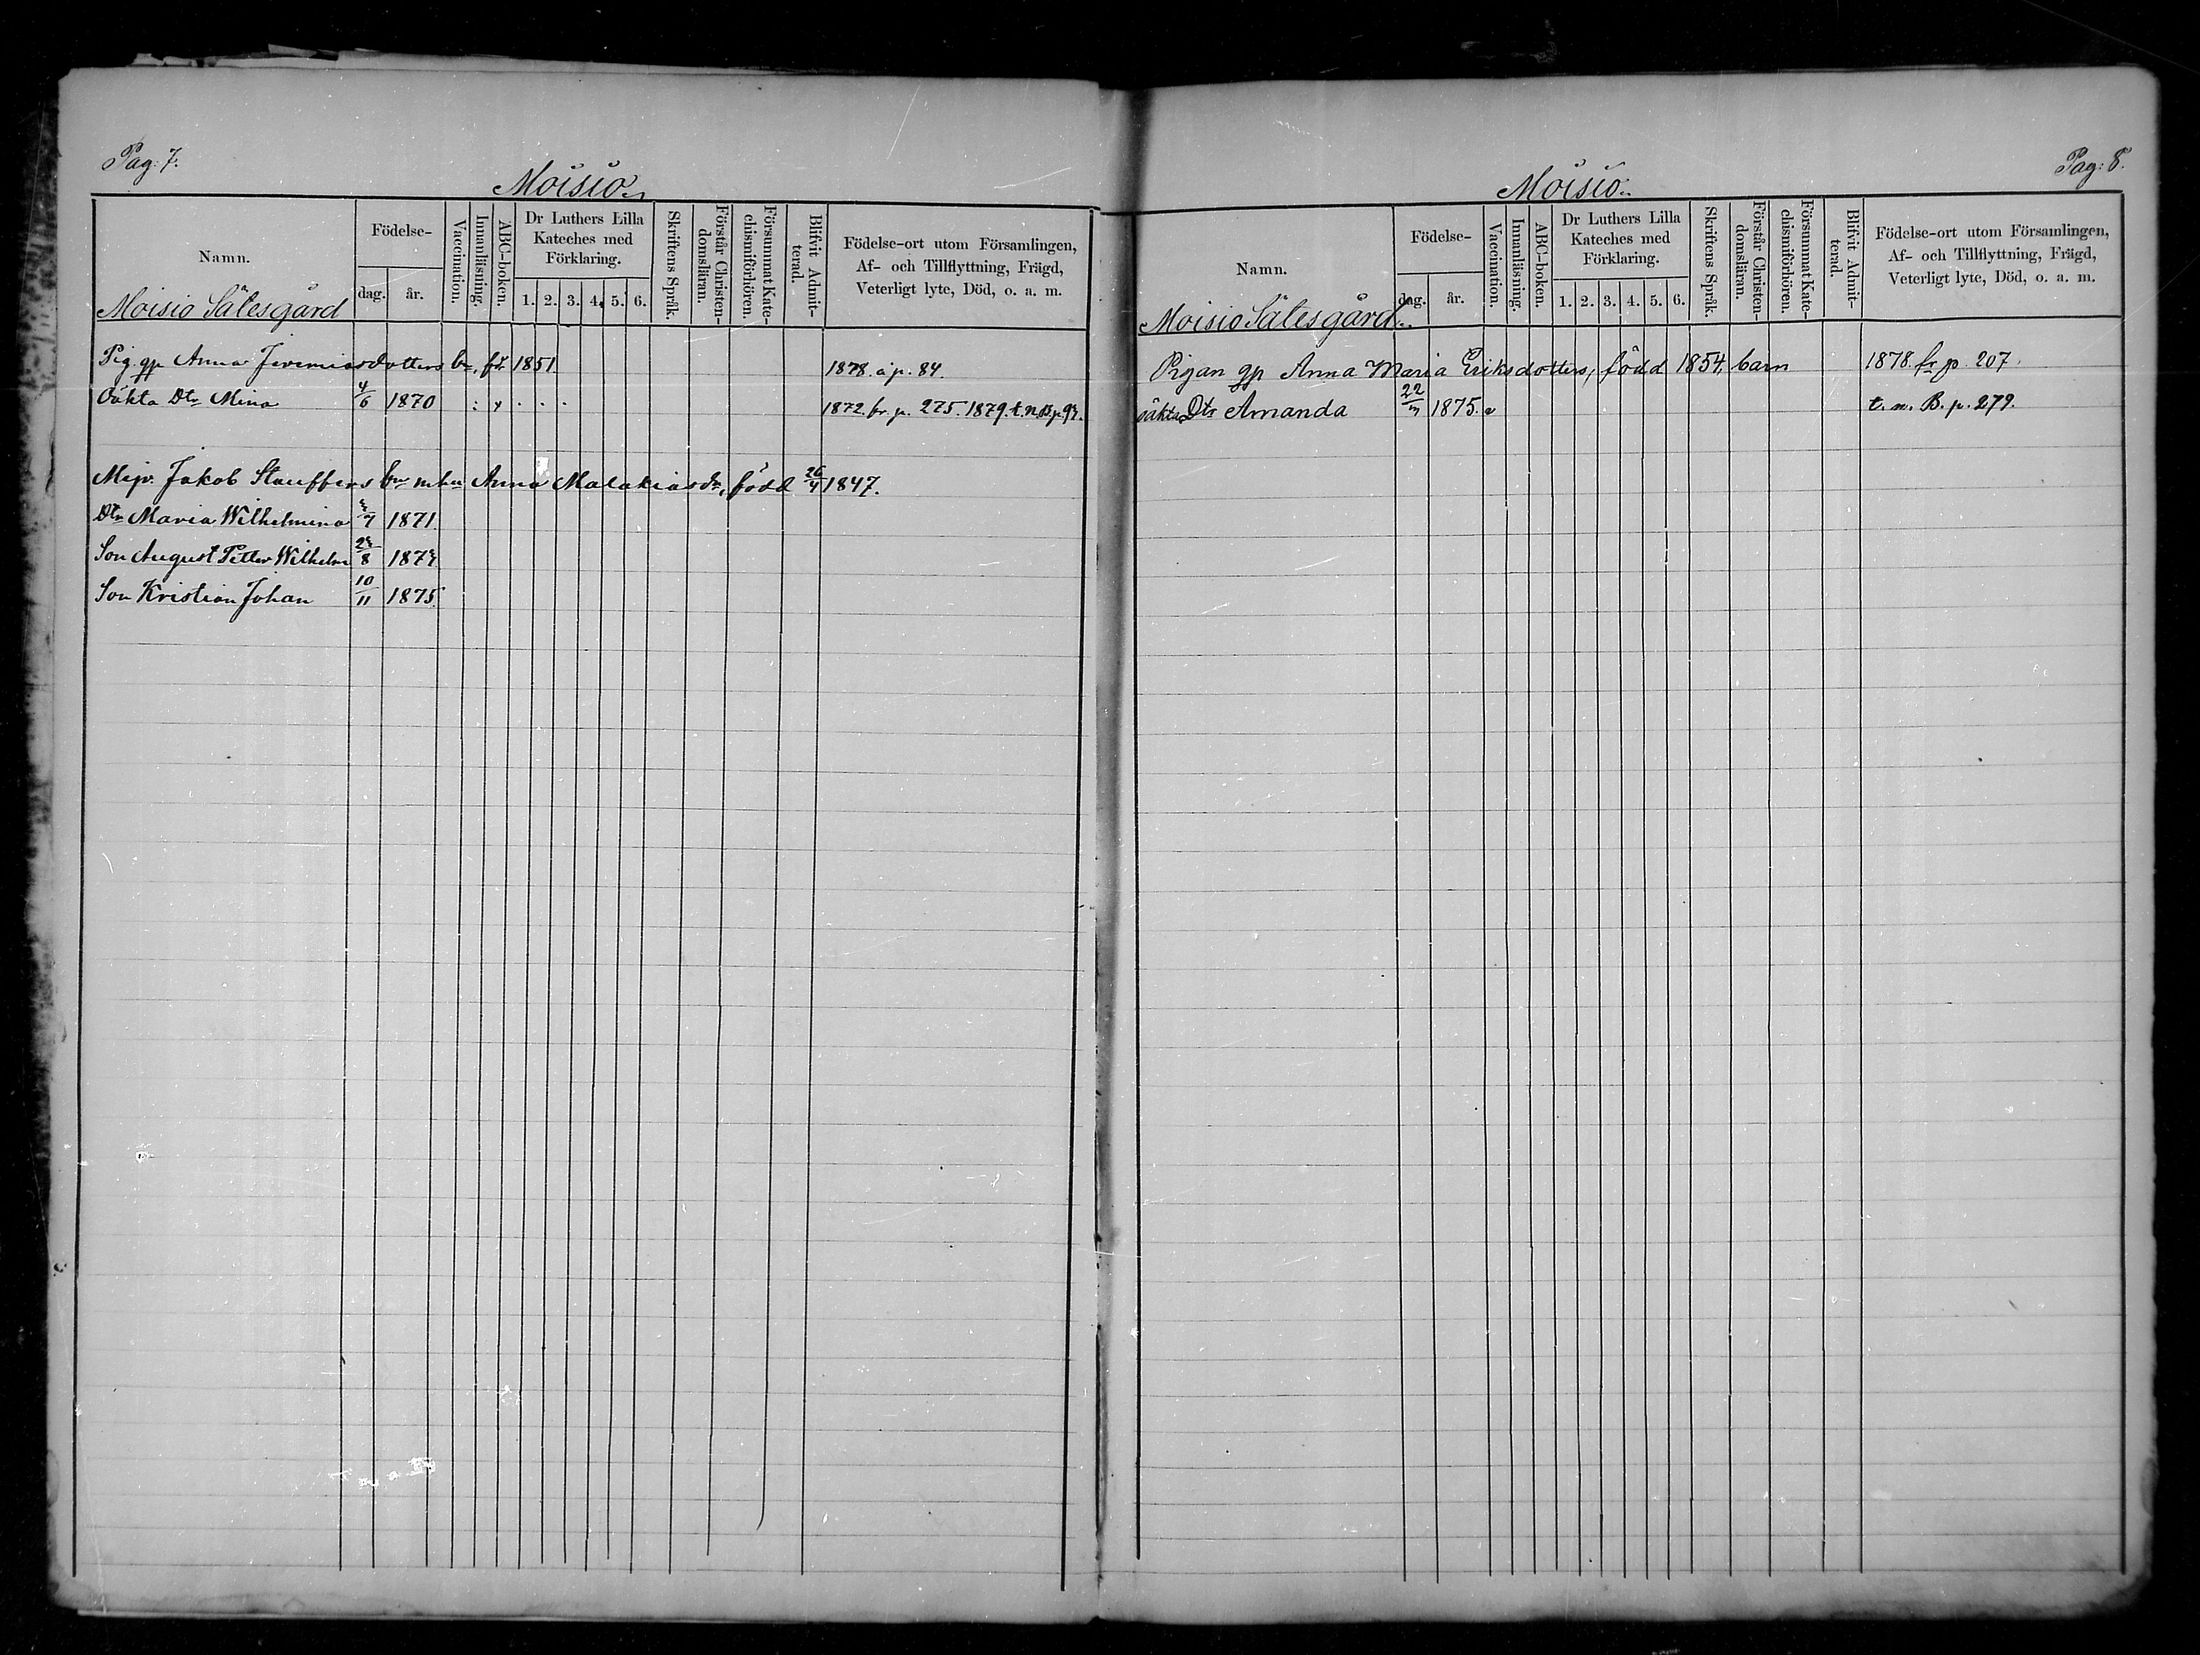 Pag: 7.
Moisio.
Namn.
Födelse-
dag.
år.
Vaccination.
Innanläsning.
ABC-boken.
Dr Luthers Lilla
Kateches med
Förklaring.
1. 2. 3. 4. 5. 6.
Skriftens Språk.
Förstår Christen-
domsläran.
Försummat Kate-
chismiförhören.
Blifvit Admit-
terad.
Födelse-ort utom Församlingen,
Af- och Tillflyttning, Frägd,
Veterligt lyte, Död, o. a. m.
Moisio Sälesgård
Pig. gp Anna Jeremiasdotters bn, fd. 1851. 1878. å p. 84.
Oäkta Dtr Mina 4/6 1870 : x . . . 1872. fr. p. 275. 1879. t. n. B. p. 93.
Jakob Stauffers Anna Malakiasdr, född 26/4 1847.
Dtr Maria Wilhelmina /7 1871.
Son August Petter Wilhelm 23/8 1873.
Son Kristian Johan 10/11 1875.
Pag: 8.
Moisio.
Namn.
Födelse-
dag.
år.
Vaccination.
Innanläsning.
ABC-boken.
Dr Luthers Lilla
Kateches med
Förklaring.
1. 2. 3. 4. 5. 6.
Skriftens Språk.
Förstår Christen-
domsläran.
Försummat Kate-
chismiförhören.
Blifvit Admit-
terad.
Födelse-ort utom Församlingen,
Af- och Tillflyttning, Frägd,
Veterligt lyte, Död, o. a. m.
Moisio Sälesgård.
Pigan gp Anna Maria Eriksdotters, född 1854, barn 1878. fr. p. 207.
oäkta Dtr Amanda 22/7 1875. v t. n. B. p. 279.